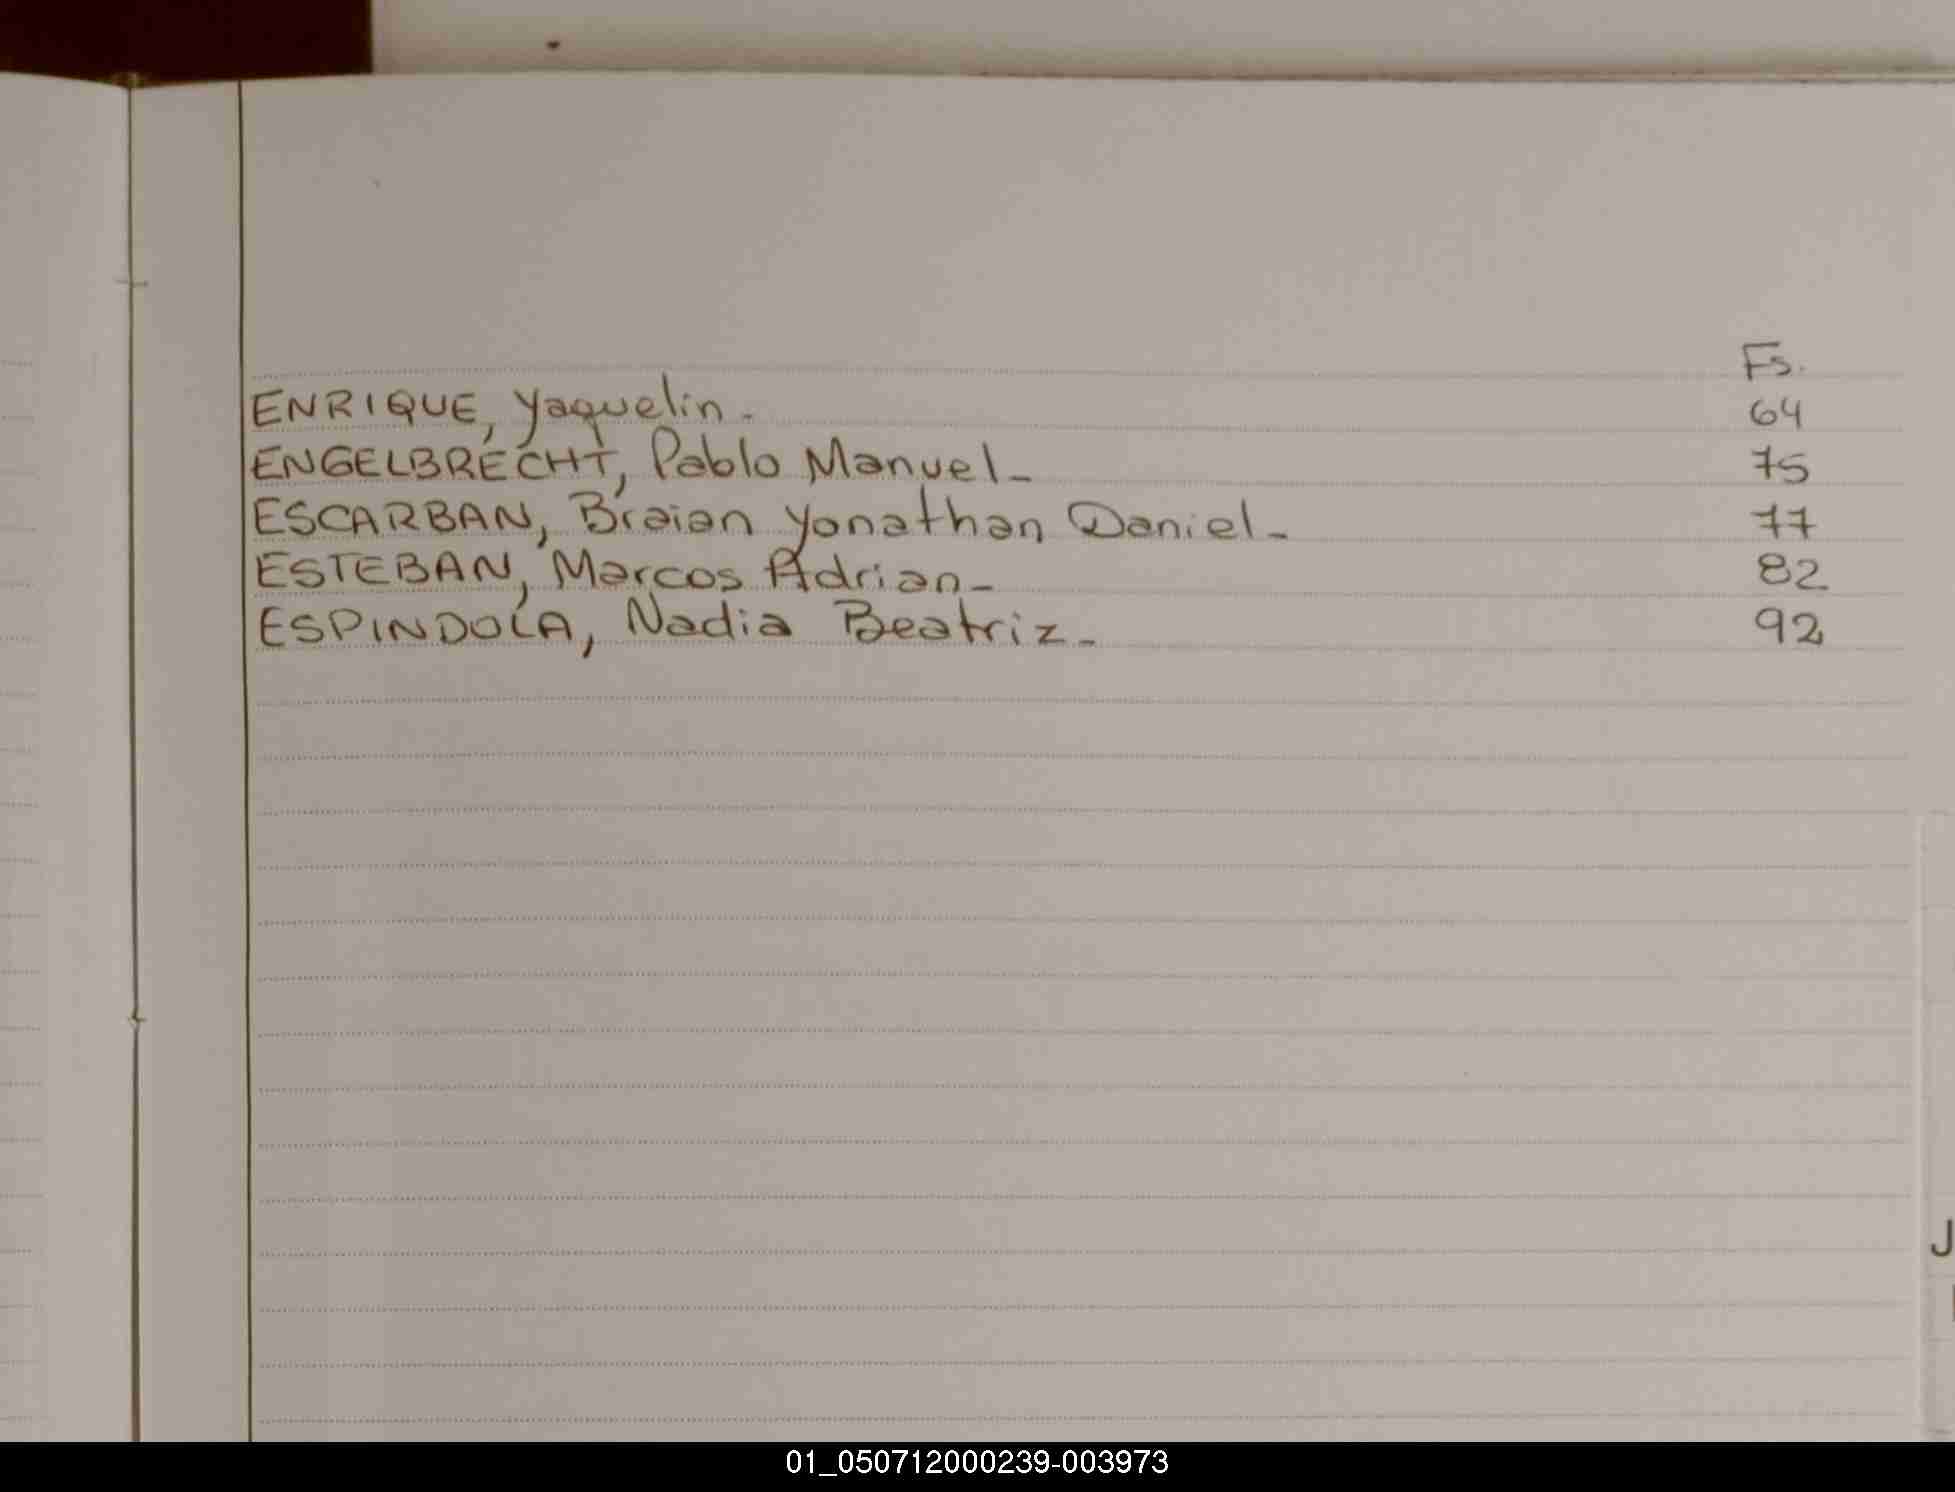 Fs.
ENRIQUE, Yaquelin. 64
ENGELBRECHT, Pablo Manuel_ 75
ESCARBAN, Braian Yonathan Daniel_ 77
ESTEBAN, Marcos Adrian_ 82
ESPINDOLA, Nadia Beatriz_ 92
J
01_050712000239-003973